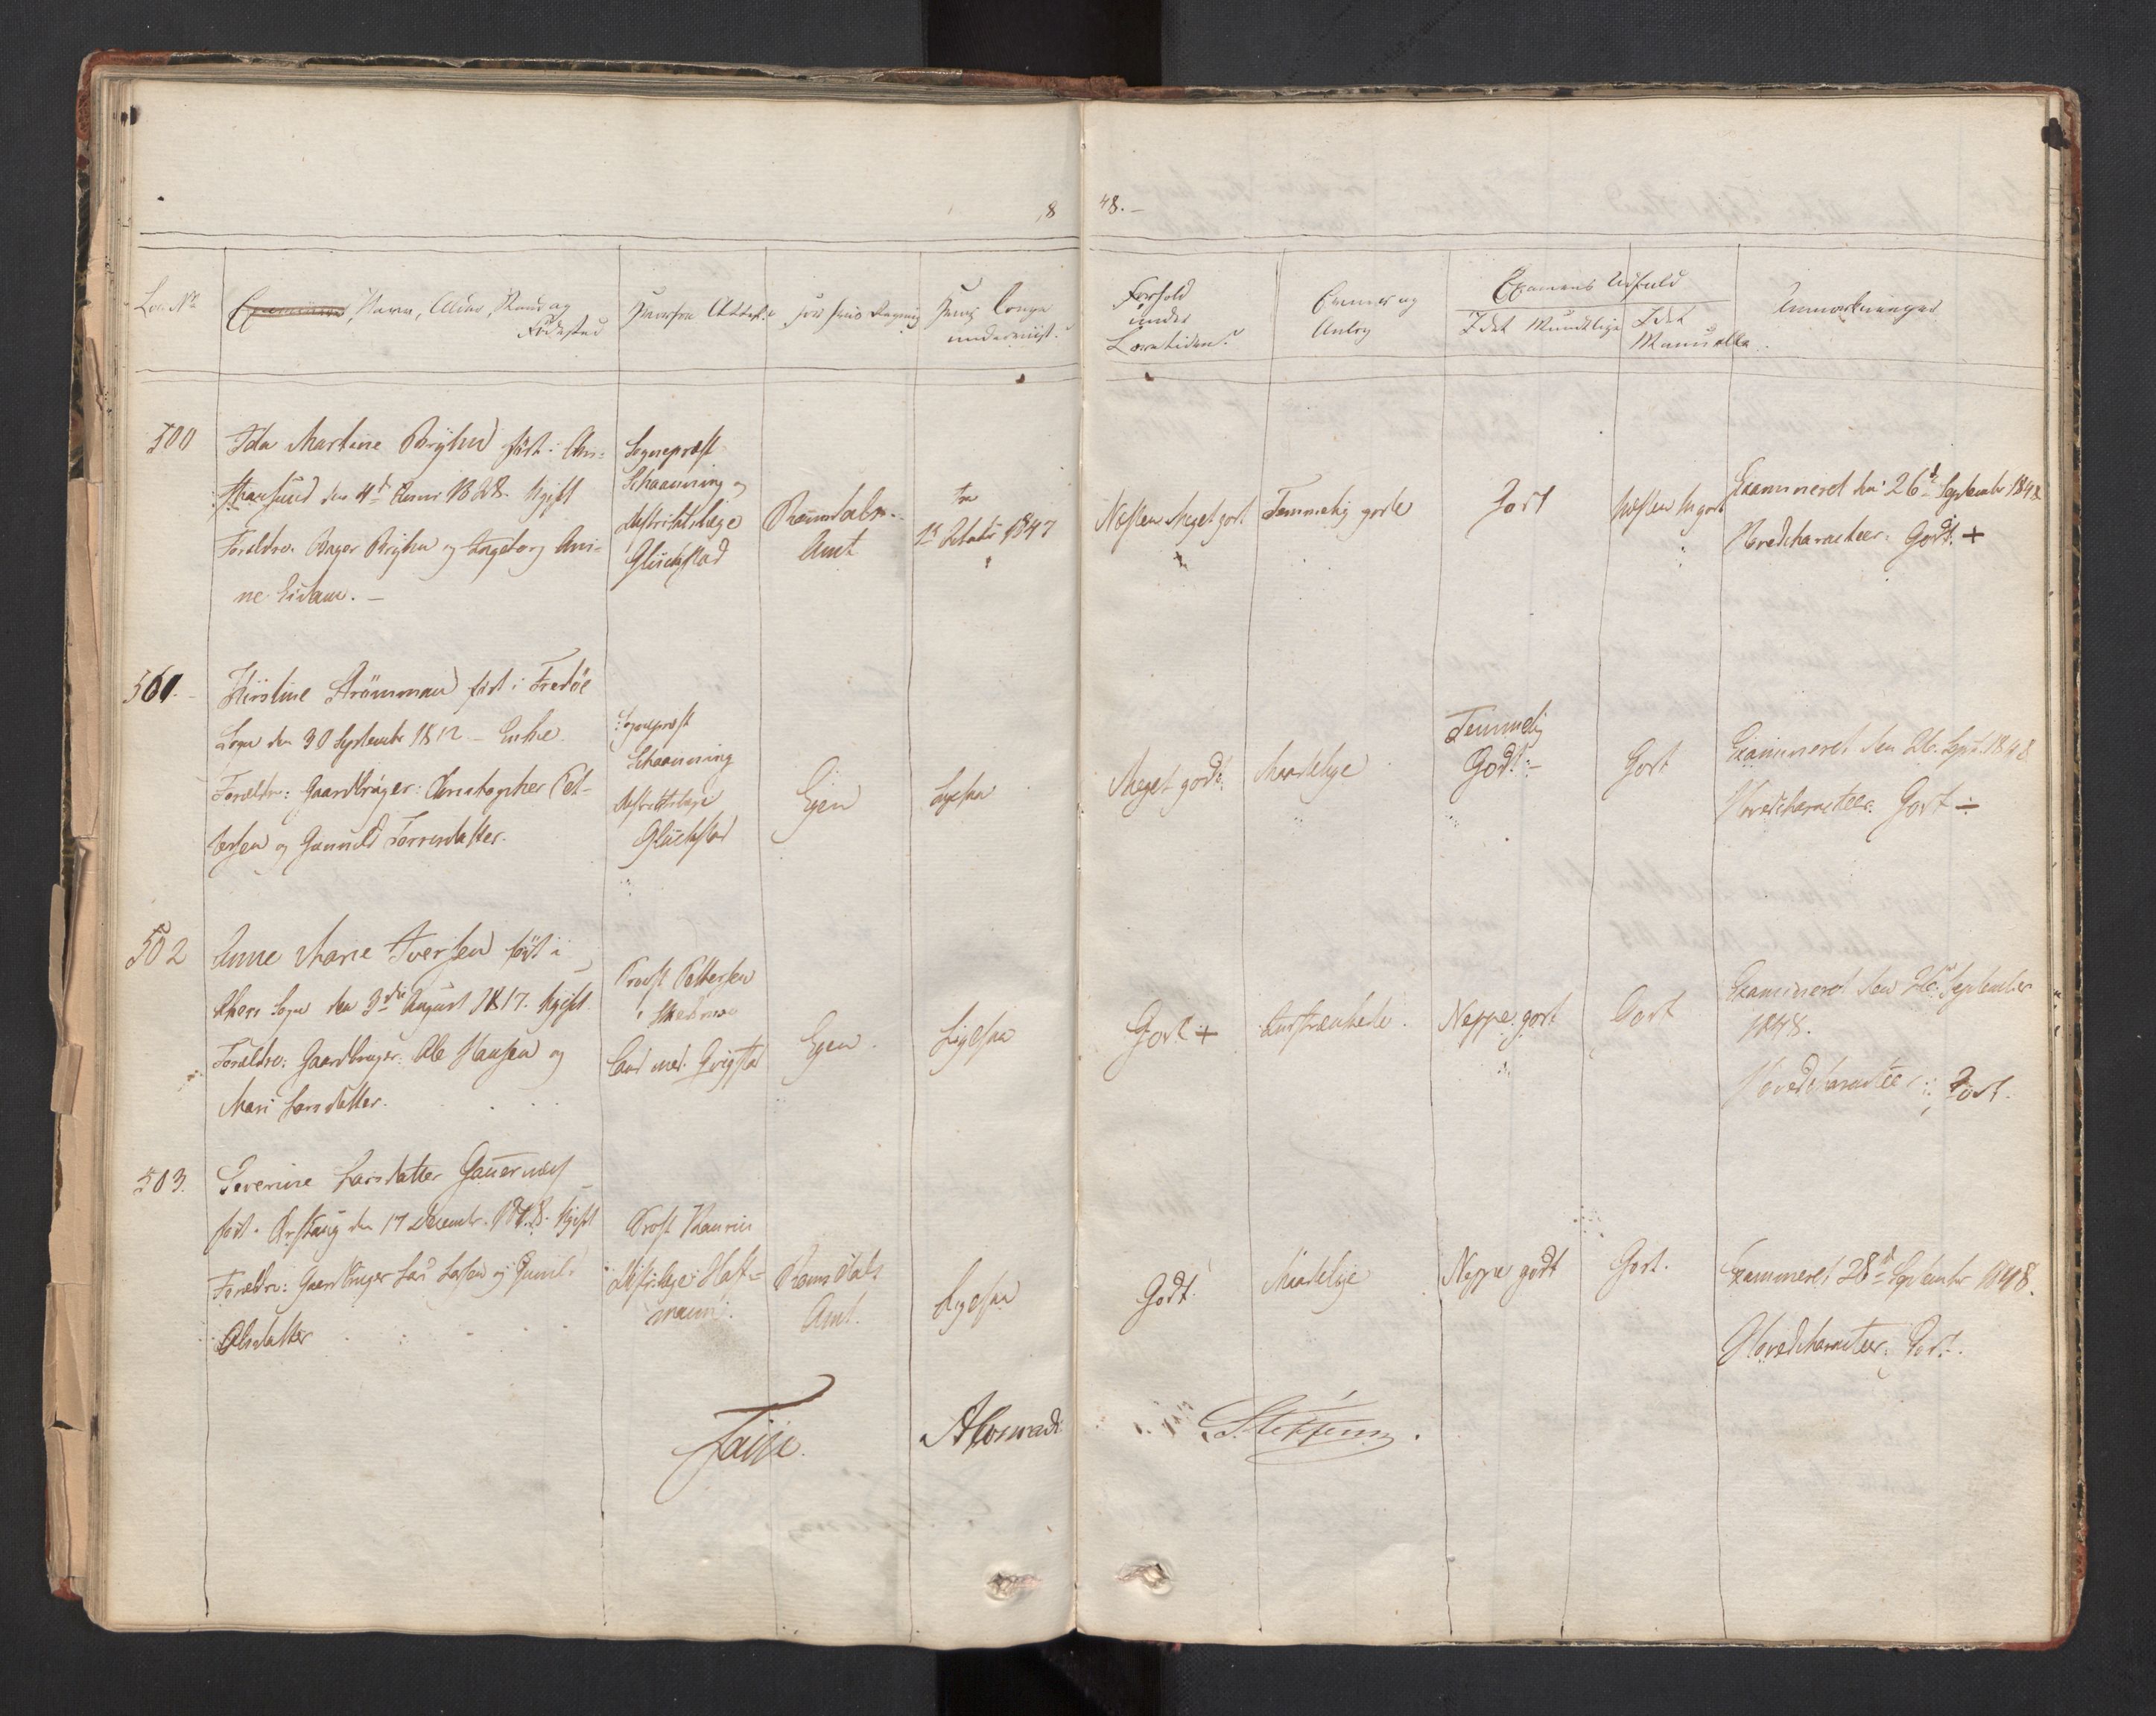 18 48. –
Lov. No.
Navn, Alder, Stand og
Fødested
Hvorfra Attest.
for hvis Regning
Hvor længe
underviist.
Forhold
under
Læretiden.
Evner og
Anlæg
Examens Udfald
I det Mundtlige
I det
Manuelle.
Anmærkninger
500
Ida Martine Bryhn født i Chri-
stiansund den 4d 1828. Ugift
Forældre: Bager Bryhn og Ingeborg Ani-
ne Eidam. –
Sognepræst
Schaanning og
Distriktslæge
Glückstad
Romsdals
Amt
fra
1st October 1847
Næsten Meget godt
Temmelig gode
Godt
Næsten M godt
Examineret den 26d September 1848
Hovedcharacteer: Godt. +
501.
Kirstine Strömman født i Fredöe
Sogn den 30 September 1812 – Enke.
Forældre: Gaardbruger: Christopher Pet-
tersen og Gunnild Torrisdatter.
Sognepræst
Schaanning
Distriktslæge
Glückstad
Egen
Ligesaa
Meget godt.
Maadelige
Temmelig
Godt –
Godt
Examineret den 26. Sept. 1848
Hovedcharacteer: Godt ÷
502
Anne Marie Iversen født i
Akers Sogn den 3die August 1817. Ugift.
Forældre: Gaardbruger Ole Hansen og
Mari Larsdatter.
Provst Pettersen
Cand. med. Qvigstad
Egen.
Ligesaa
Godt +
Indskrænkede.
Neppe godt
Godt
Examineret den 26. September
1848.
Hovedcharacteer: Godt.
503.
Severine Larsdatter Gauernæs
født i den 17 December 1818. Ugift
Forældre: Gaardbruger Lars Larsen og Gunil
Olsdatter
Provst Kaurin
Distr.læge Hoff-
mann.
Romsdals
Amt.
Ligesaa
Godt.
Maadelige
Neppe godt
Godt.
Examineret 28d September 1848.
Hovedcharacteer: Godt.
Faye.
A Conradi
Steffens.